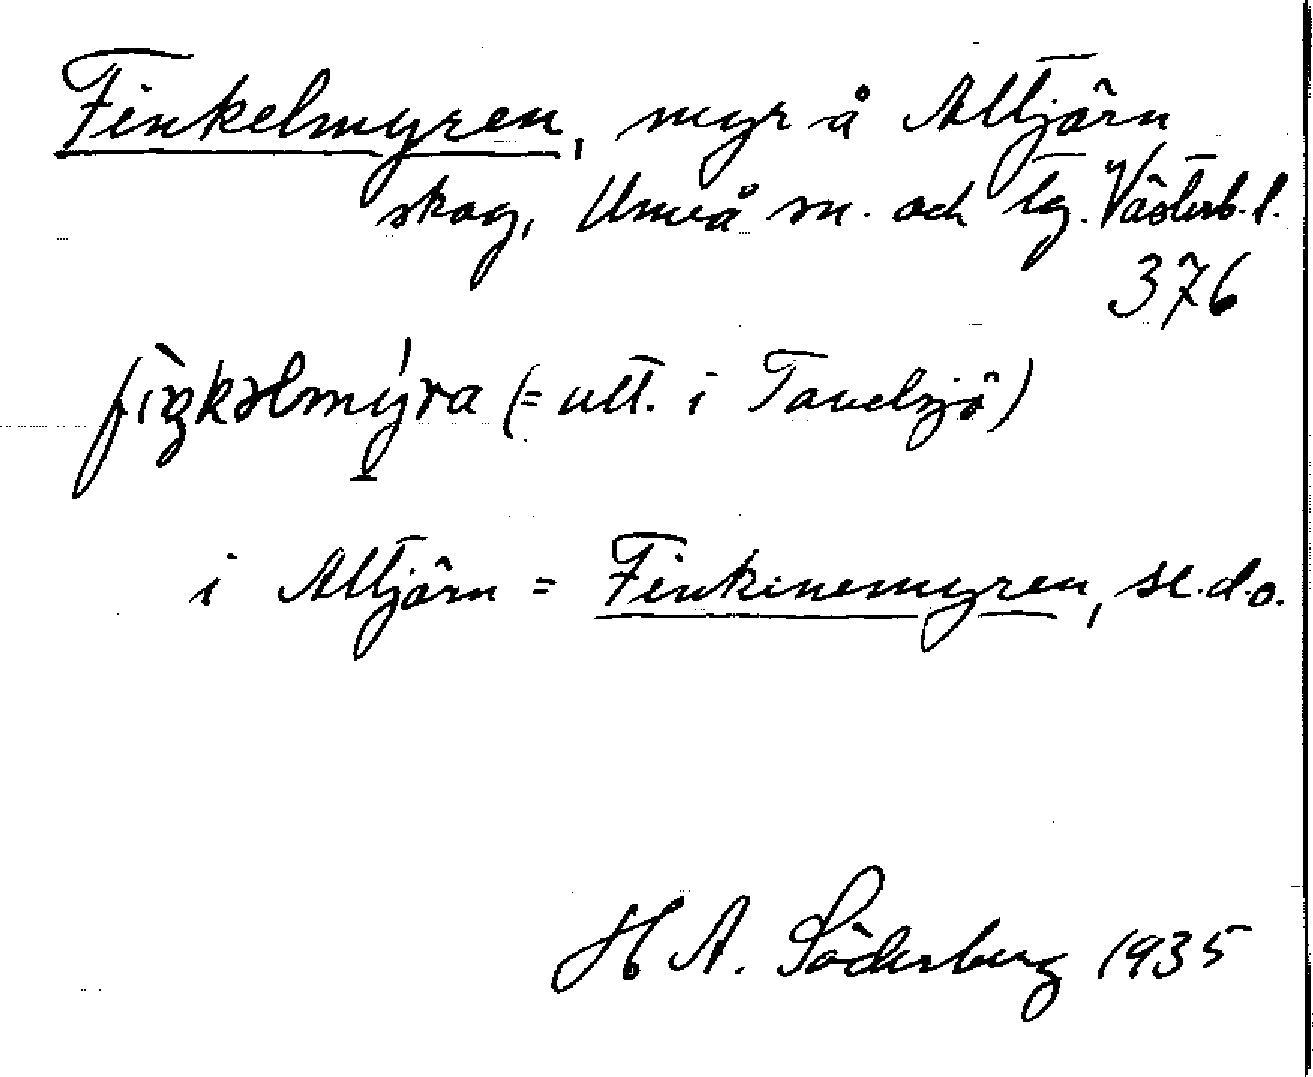 Finkelmyren, myr å Alltjärn
skog, Umeå sn. och tg. Västerb. l.
376
fiŋkəlmýra (= utt. i Tavelsjö)
i Alltjärn = Finkinemyren, se d.o.
H A. Söderberg 1935